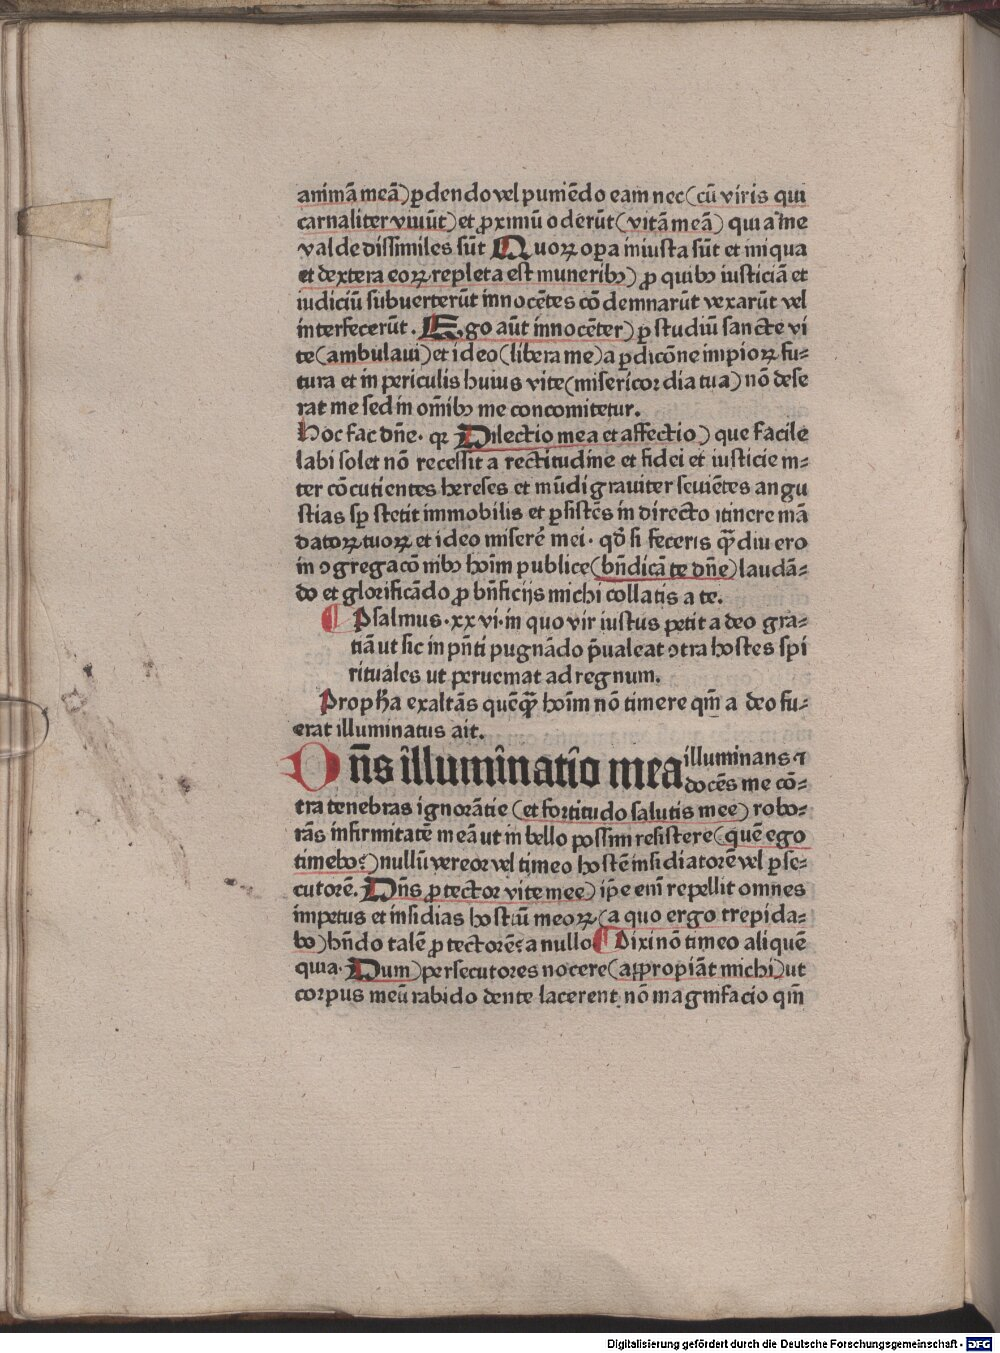 animā meā) ꝑdendo vel puniēdo eam nec (cū viris qui
carnaliter viuūt) et ꝓximū oderūt (vitā meā) qui a me
valde dissimiles sūt Quoꝝ oꝑa iniusta sūt et iniqua
et dextera eoꝝ repleta est muneribꝫ) ꝓ quibꝫ iusticiā et
iudiciū subuerterūt innocētes cōdemnarūt vexarūt vel
interfecerūt. Ego aūt innocēter) ꝑ studiū sancte vi
te (ambulaui) et ideo (libera me) a ꝑdicōne impioꝝ fu⸗
tura et in periculis huius vite (misericordia tua) nō dese
rat me sed in om̄ibꝫ me concomitetur.
Hoc fac dn̄e. qꝛ Dilectio mea et affectio) que facile
labi solet nō recessit a rectitudine et fidei et iusticie in⸗
ter cōcutientes hereses et mūdi grauiter seuiētes angu
stias sꝑ stetit immobilis et ꝑsistēs in directo itinere mā
datoꝝ tuoꝝ et ideo miserē mei. qđ si feceris qꝫ̄diu ero
in ꝯgregacōnibꝫ hoīm publice (bn̄dicā te dn̄e) laudā⸗
do et glorificādo ꝓ bn̄ficijs michi collatis a te.
¶ Psalmus. xxvi. in quo vir iustus petit a deo gra⸗
tiā ut sic in pn̄ti pugnādo p̄ualeat ꝯtra hostes spi
rituales ut perueniat ad regnum.
Propħa exaltās quēqꝫ̄ hoīm nō timere qm̄ a deo fu⸗
erat illuminatus ait.
Dn̄s illuminatio mea illuminans ⁊
docēs me cō⸗
tra tenebras ignorātie (et fortitudo salutis mee) robo⸗
rās infirmitatē meā ut in bello possim resistere (quē ego
timebo?) nullū vereor vel timeo hostē insidiatorē vel ꝑse⸗
cutorē. Dn̄s ꝓtector vite mee) ip̄e eni᷒ repellit omnes
impetus et insidias hostiū meoꝝ (a quo ergo trepida⸗
bo) bn̄do talē ꝓtectorē? a nullo ¶ Dixi nō timeo aliquē
quia. Dum) persecutores nocere (appropiāt michi) ut
corpus meū rabido dente lacerent nō magnifacio qm̄
Digitalisierung gefördert durch die Deutsche Forschungsgemeinschaft - DFG